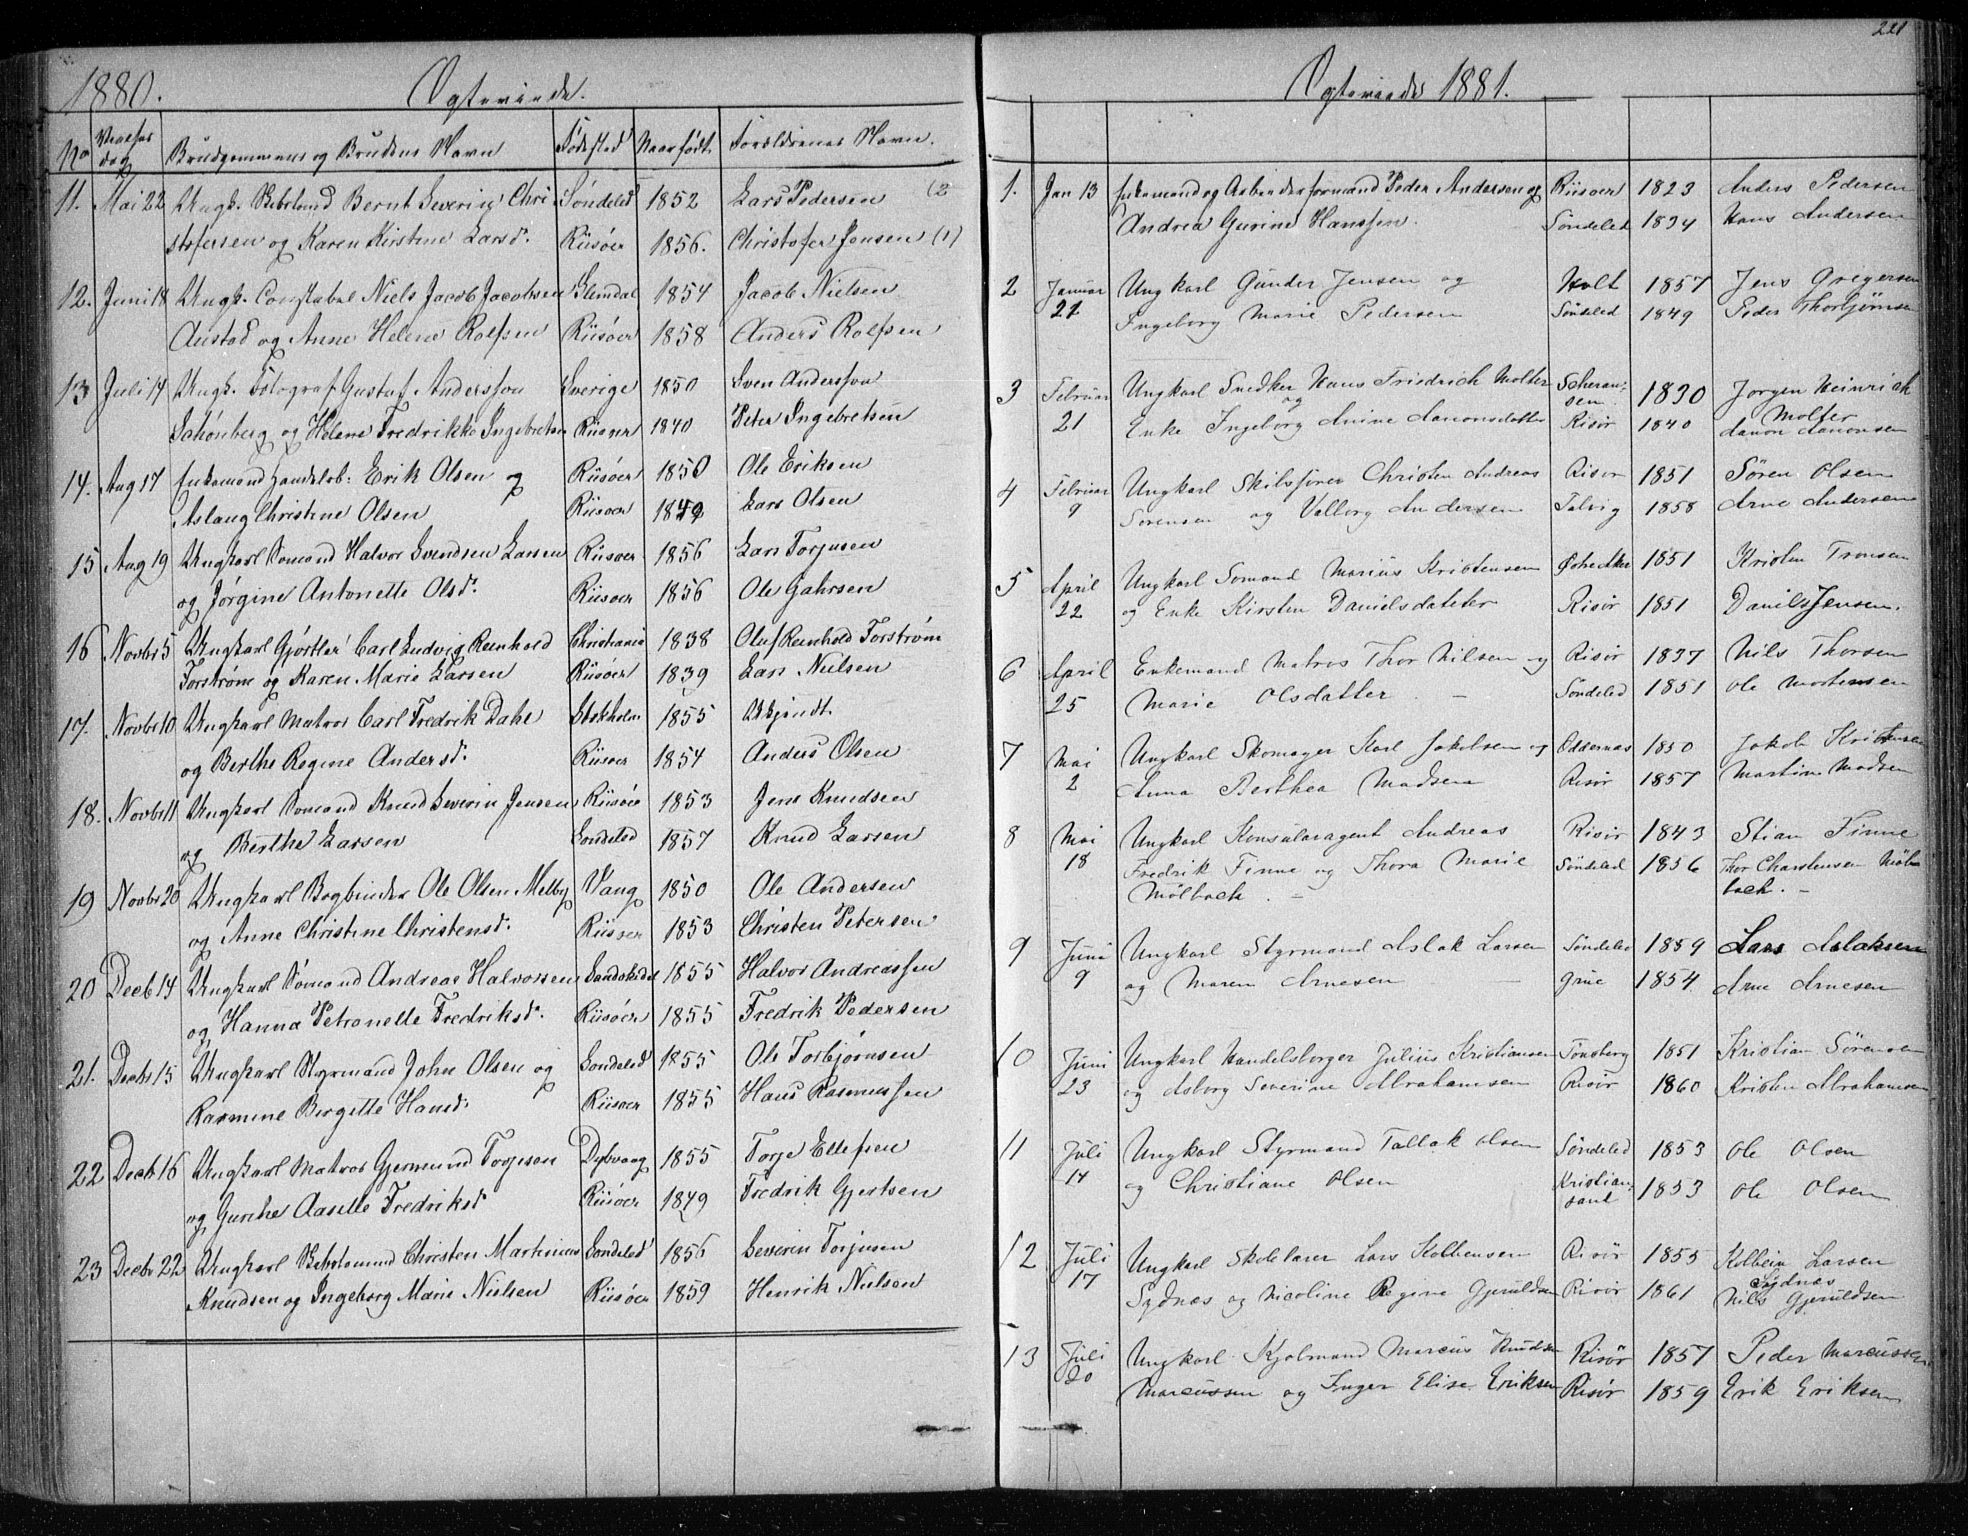 1880. Ægtevíede.
No Vielses dag Brudgommens og Brudens Navn Fødested Naar født. Forældrenes Navn.
11. Mai 22 Ungk. Bernt Severin Chri Søndeled 1852 Lars Pedersen (2
stofersen og Karen Kirstine Larsd. Riisøer 1856. Christofer Jensen (1)
12. Juni 18 Ungk. Constabel Niels Jacob Jacobsen 1854 Jacob Nielsen
Austad og Anne Helene Rolfsen Riisøer 1858 Anders Rolfsen
13 Juli 14 Ungk. Fotograf Gustaf Andersson Sverige 1850 Sven Andersson
Schönberg og Helene Fredrikke Ingebretsen Riisøer 1840 Peter Ingebretsen
14. Aug 17 Enkemand Handelsb: Erik Olsen og Riisøer 1850 Ole Eriksen
Aslaug Christine Olsen Riisøer Lars Olsen
15 Aug 19 Ungkarl Sømand Halvor Svendsen Larsen Riisøer 1856 Lars Torjusen
og Jørgine Antonette Olsd. Riisøer 1856 Ole Gahrsen
16 Novbr 5 Ungkarl Gjørtler Carl Ludvig Reinhold Christiania 1838 Oluf Reinhold Forstrøm
Forstrøm og Karen Marie Larsen Riisøer 1839 Lars Nielsen
17. Novbr 10 Ungkarl Matros Carl Fredrik Dahl Stokholm 1855 Ubekjendt.
og Berthe Regine Andersd. Riisøer 1854 Anders Olsen
18. Novbr 11 Ungkarl Sømand Knud Severin Jensen Riisøer 1853 Jens Knudsen
og Berthe Larsen Sondeled 1857 Knud Larsen
19 Novbr 20 Ungkarl Bogbinder Ole Olsen Melby Vang 1850 Ole Andersen
og Anne Christine Christensd. Riisøer 1853 Christen Petersen
20 Decb 14 Ungkarl Sømand Andreas Halvorsen Sandøkedal 1855 Halvor Andreassen
og Hanna Petronelle Fredriksd. Riisøer 1855 Fredrik Pedersen
21. Decbr 15 Ungkarl Styrmand John Olsen og Sondeled 1855 Ole Torbjørnsen
Rasmine Birgitte Hansd. Riisøer 1855 Hans Rasmussen
22 Decb 16 Ungkarl Matros Gjermund Torjesen Dybvaag 1855 Torje Ellefsen
og Gurche Aaselle Fredriksd Riisøer 1849 Fredrik Gjertsen
23 Decbr 22 Ungkarl Christen Martinius Sondeled 1856 Severin Torjusen
Knudsen og Ingeborg Marie Nielsen Riisøer 1859 Henrik Nielsen
221
Ægteviede 1881.
1. Jan 13 Enkemand og Arbeiderformand Peder Andersen og Riisøer 1823 Anders Pedersen
Andrea Gurine Hanssen. Søndeled 1834 Hans Andersen
2 Januar Ungkarl Gunder Jensen og Holt 1857 Jens Gregersen
21 Ingeborg Marie Pedersen Søndeled 1849 Peder Thorbjørnsen
3 Februar Ungkarl Snedker Hans Friedrich Molter 1830 Jørgen Heinrich
og sen Molter
21 Enke Ingeborg Anine Aanonsdatter Risør 1840 Aanon Aanonsen
4 Februar Ungkarl Skibsfører Christen Andreas Risør 1851 Søren Olsen
9 Sørensen og Valborg Andersen Talvig 1858 Arne Andersen
5 April Ungkarl Sømand Marius Kristensen 1851 Kristen Tronsen
22 og Enke Kirsten Danielsdatter Risør 1851 Daniels Jensen.
6 April Enkemand Matros Thor Nilsen og Risør 1837 Nils Thorsen
25 Marie Olsdatter. – Søndeled 1851 Ole Mortensen
7 Mai Ungkarl Skomager Karl Jakobsen og Oddernæs 1850 Jakob Kristensen
2 Anna Berthea Madsen Risør 1857 Martin Madsen
8 Mai Ungkarl Konsularagent Andreas Risør 1843 Stian Finne
18 Fredrik Finne og Thora Marie Søndeled 1856 Thor Charstensen Møl
Mølbach. – bach. –
9 Juni Ungkarl Styrmand Aslak Larsen Søndeled 1859 Lars Aslaksen
9 og Maren Arnesen Grue 1854. Arne Arnesen
10 Juni Ungkarl Handelsborger Julius Kristiansen Tønsberg 1851 Kristian Sørensen
23 og Asborg Severine Abrahamsen Risør 1860 Kristen Abrahamsen
11 Juli Ungkarl Styrmand Tallak Olsen Søndeled 1853 Ole Olsen
14 og Christiane Olsen Kristian-sand 1853 Ole Olsen
12 Juli Ungkarl Skolelærer Lars Kolbensen Risør 1855 Kolbein Larsen
17 Sydnæs og Nicoline Regine Gjeruldsen Risør 1861 Sydnæs
Nils Gjeruldsen
13 Juli Ungkarl Kjolmand Marcus Knudsen Risør 1857 Peder Marcussen
20 Marcussen og Inger Elise Eriksen Risør 1859 Erik Eriksen